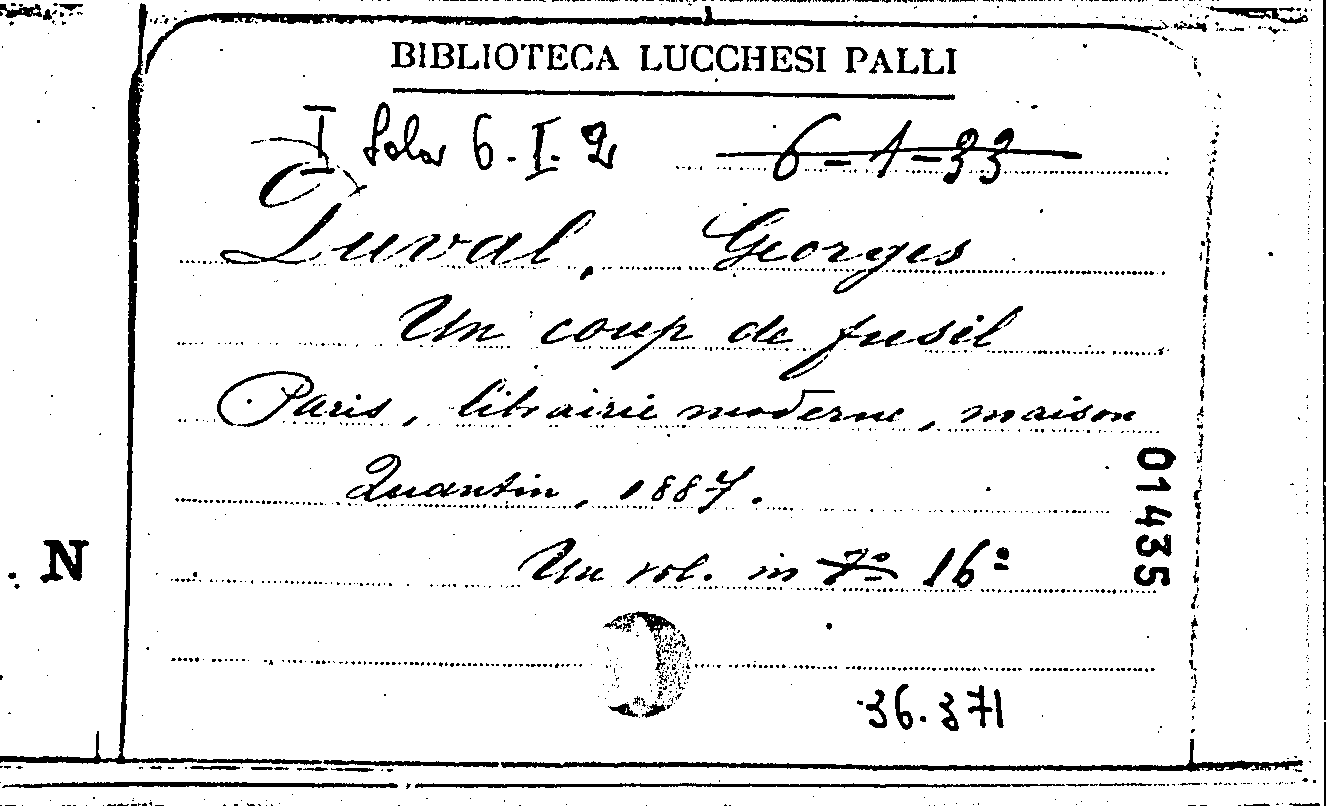 BIBLIOTECA LUCCHESI PALLI
I Sala 6. I. 2 6-1-33
Duval, Georges
Un coup de fusil
Paris, librairie moderne, maison
Quantin, 1887.
Un vol. in 7º 16º
36.371
01435
N